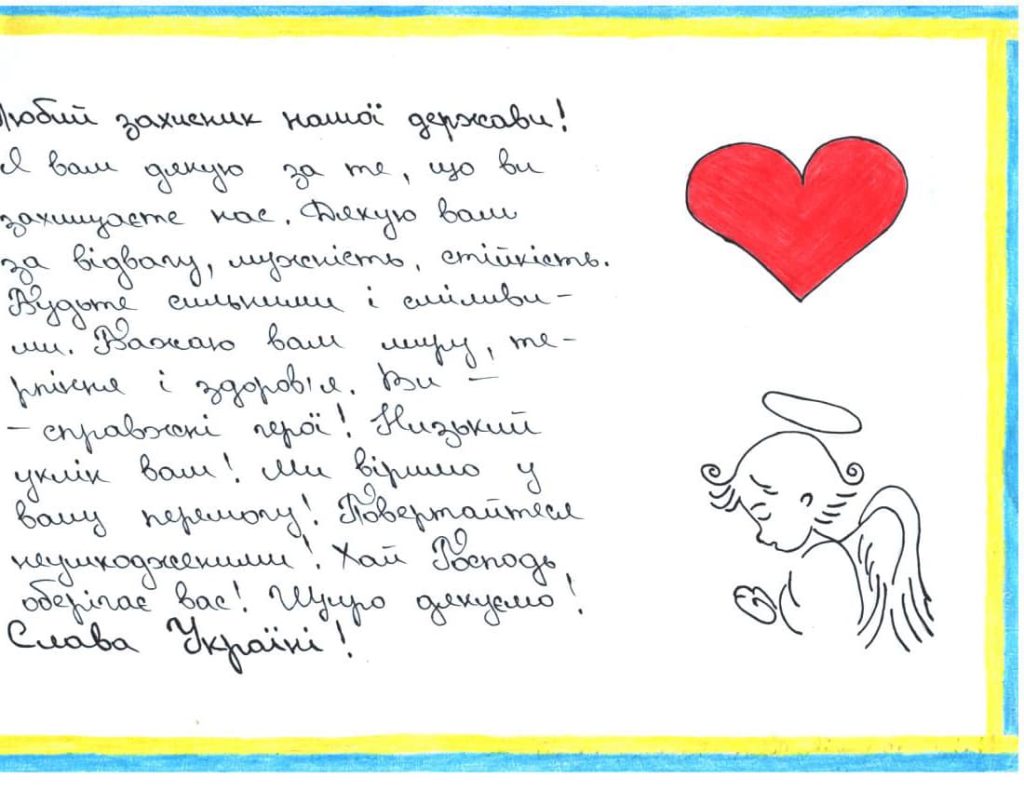 Любий захисник нашої держави!
Я вам дякую за те, що ви
захищаєте нас. Дякую вам
за відвагу, мужність, стійкість.
Будьте сильними і сміливи-
ми. Бажаю вам миру, те-
рпіння і здоров'я. Ви -
- справжні герої! Низький
уклін вам! Ми віримо у
вашу перемогу! Повертайтеся
неушкодженими! Хай Господь
оберігає вас! Щиро дякуємо!
Слава Україні!